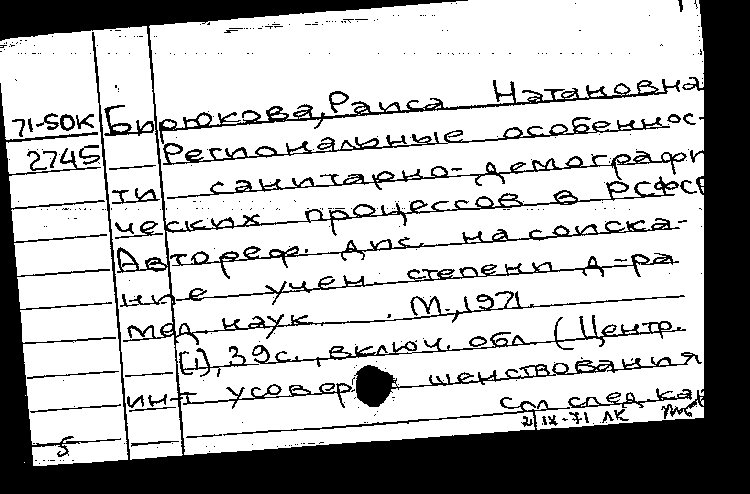 71-50К Бирюкова, Раиса Натановна
2745 Региональные особеннос-
ти санитарно-демографи
ческих процессов в РСФСР
Автореф. дис. на соиска-
ние учен. степени д-ра
мед. наук. М., 1971.
[1], 39 с., включ. обл. (Центр.
ин-т усовершенствования
см след кар
5 2/IX-71 ЛК